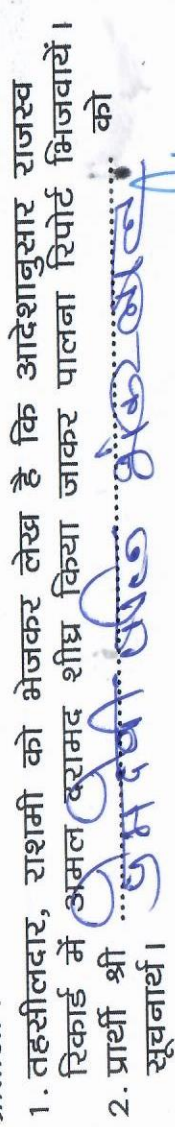 1. तहसीलदार, राशमी को भेजकर लेख है कि आदेशानुसार राजस्व
रिकार्ड में अमल दरामद शीघ्र किया जाकर पालना रिपोर्ट भिजवायें।
2. प्रार्थी श्री को
सूचनार्थ।